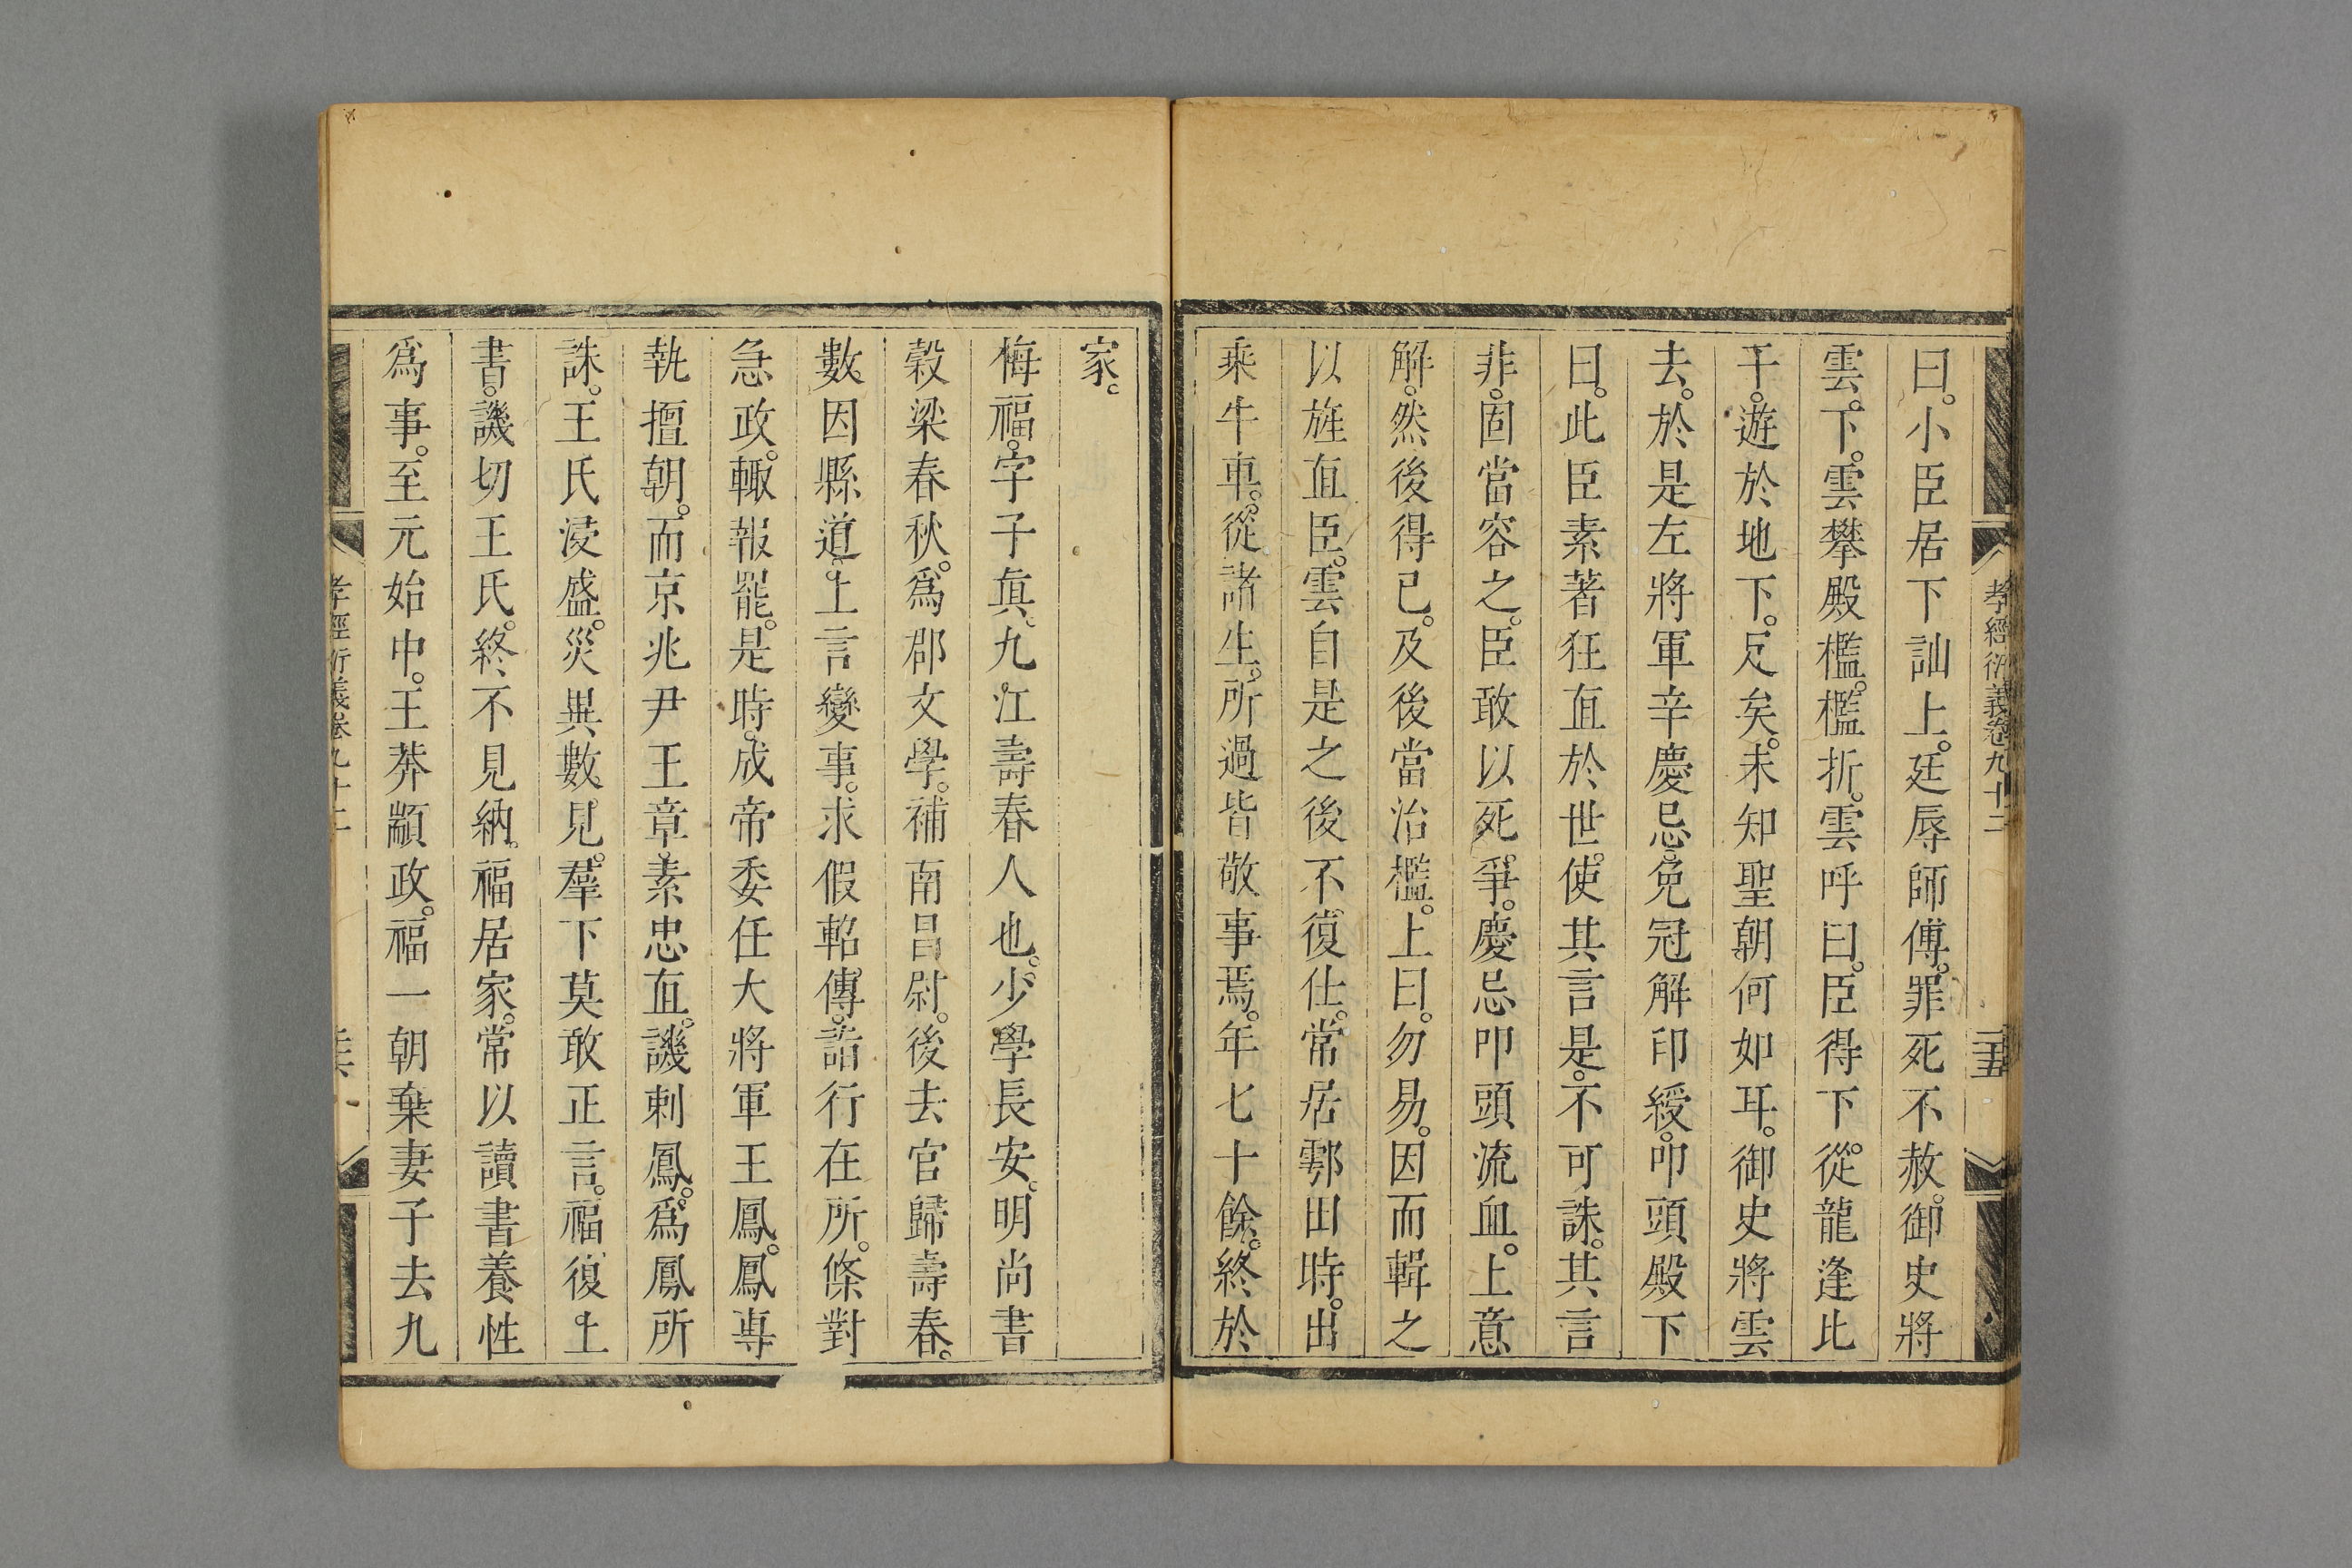 孝經衍義卷九十二
二十五
曰。小臣居下訕上。廷辱師傅。罪死不赦。御史將
雲。下。雲攀殿檻。檻折。雲呼曰。臣得下。從龍逢比
干。遊於地下。足矣。未知聖朝何如耳。御史將雲
去。於是左將軍辛慶忌。免冠解印綬。叩頭殿下
曰。此臣素著狂直於世。使其言是。不可誅。其言
非。固當容之。臣敢以死爭。慶忌叩頭流血。上意
解。然後得已。及後當治檻。上曰。勿易。因而輯之
以旌直臣。雲自是之後不復仕。常居鄠田時。出
乘牛車。從諸生。所過皆敬事焉。年七十餘。終於
家。
梅福。字子眞。九江壽春人也。少學長安。明尚書
穀梁春秋。爲郡文學。補南昌尉。後去官歸壽春。
數因縣道。上言變事。求假軺傳。詣行在所。條對
急政。輙報罷。是時。成帝委任大將軍王鳳。鳳專
執擅朝。而京兆尹王章。素忠直。譏刺鳳。爲鳳所
誅。王氏浸盛。災異數見。羣下莫敢正言。福復上
書。譏切王氏。終不見納。福居家。常以讀書養性
爲事。至元始中。王莽顓政。福一朝棄妻子去九
孝經衍義卷九十二